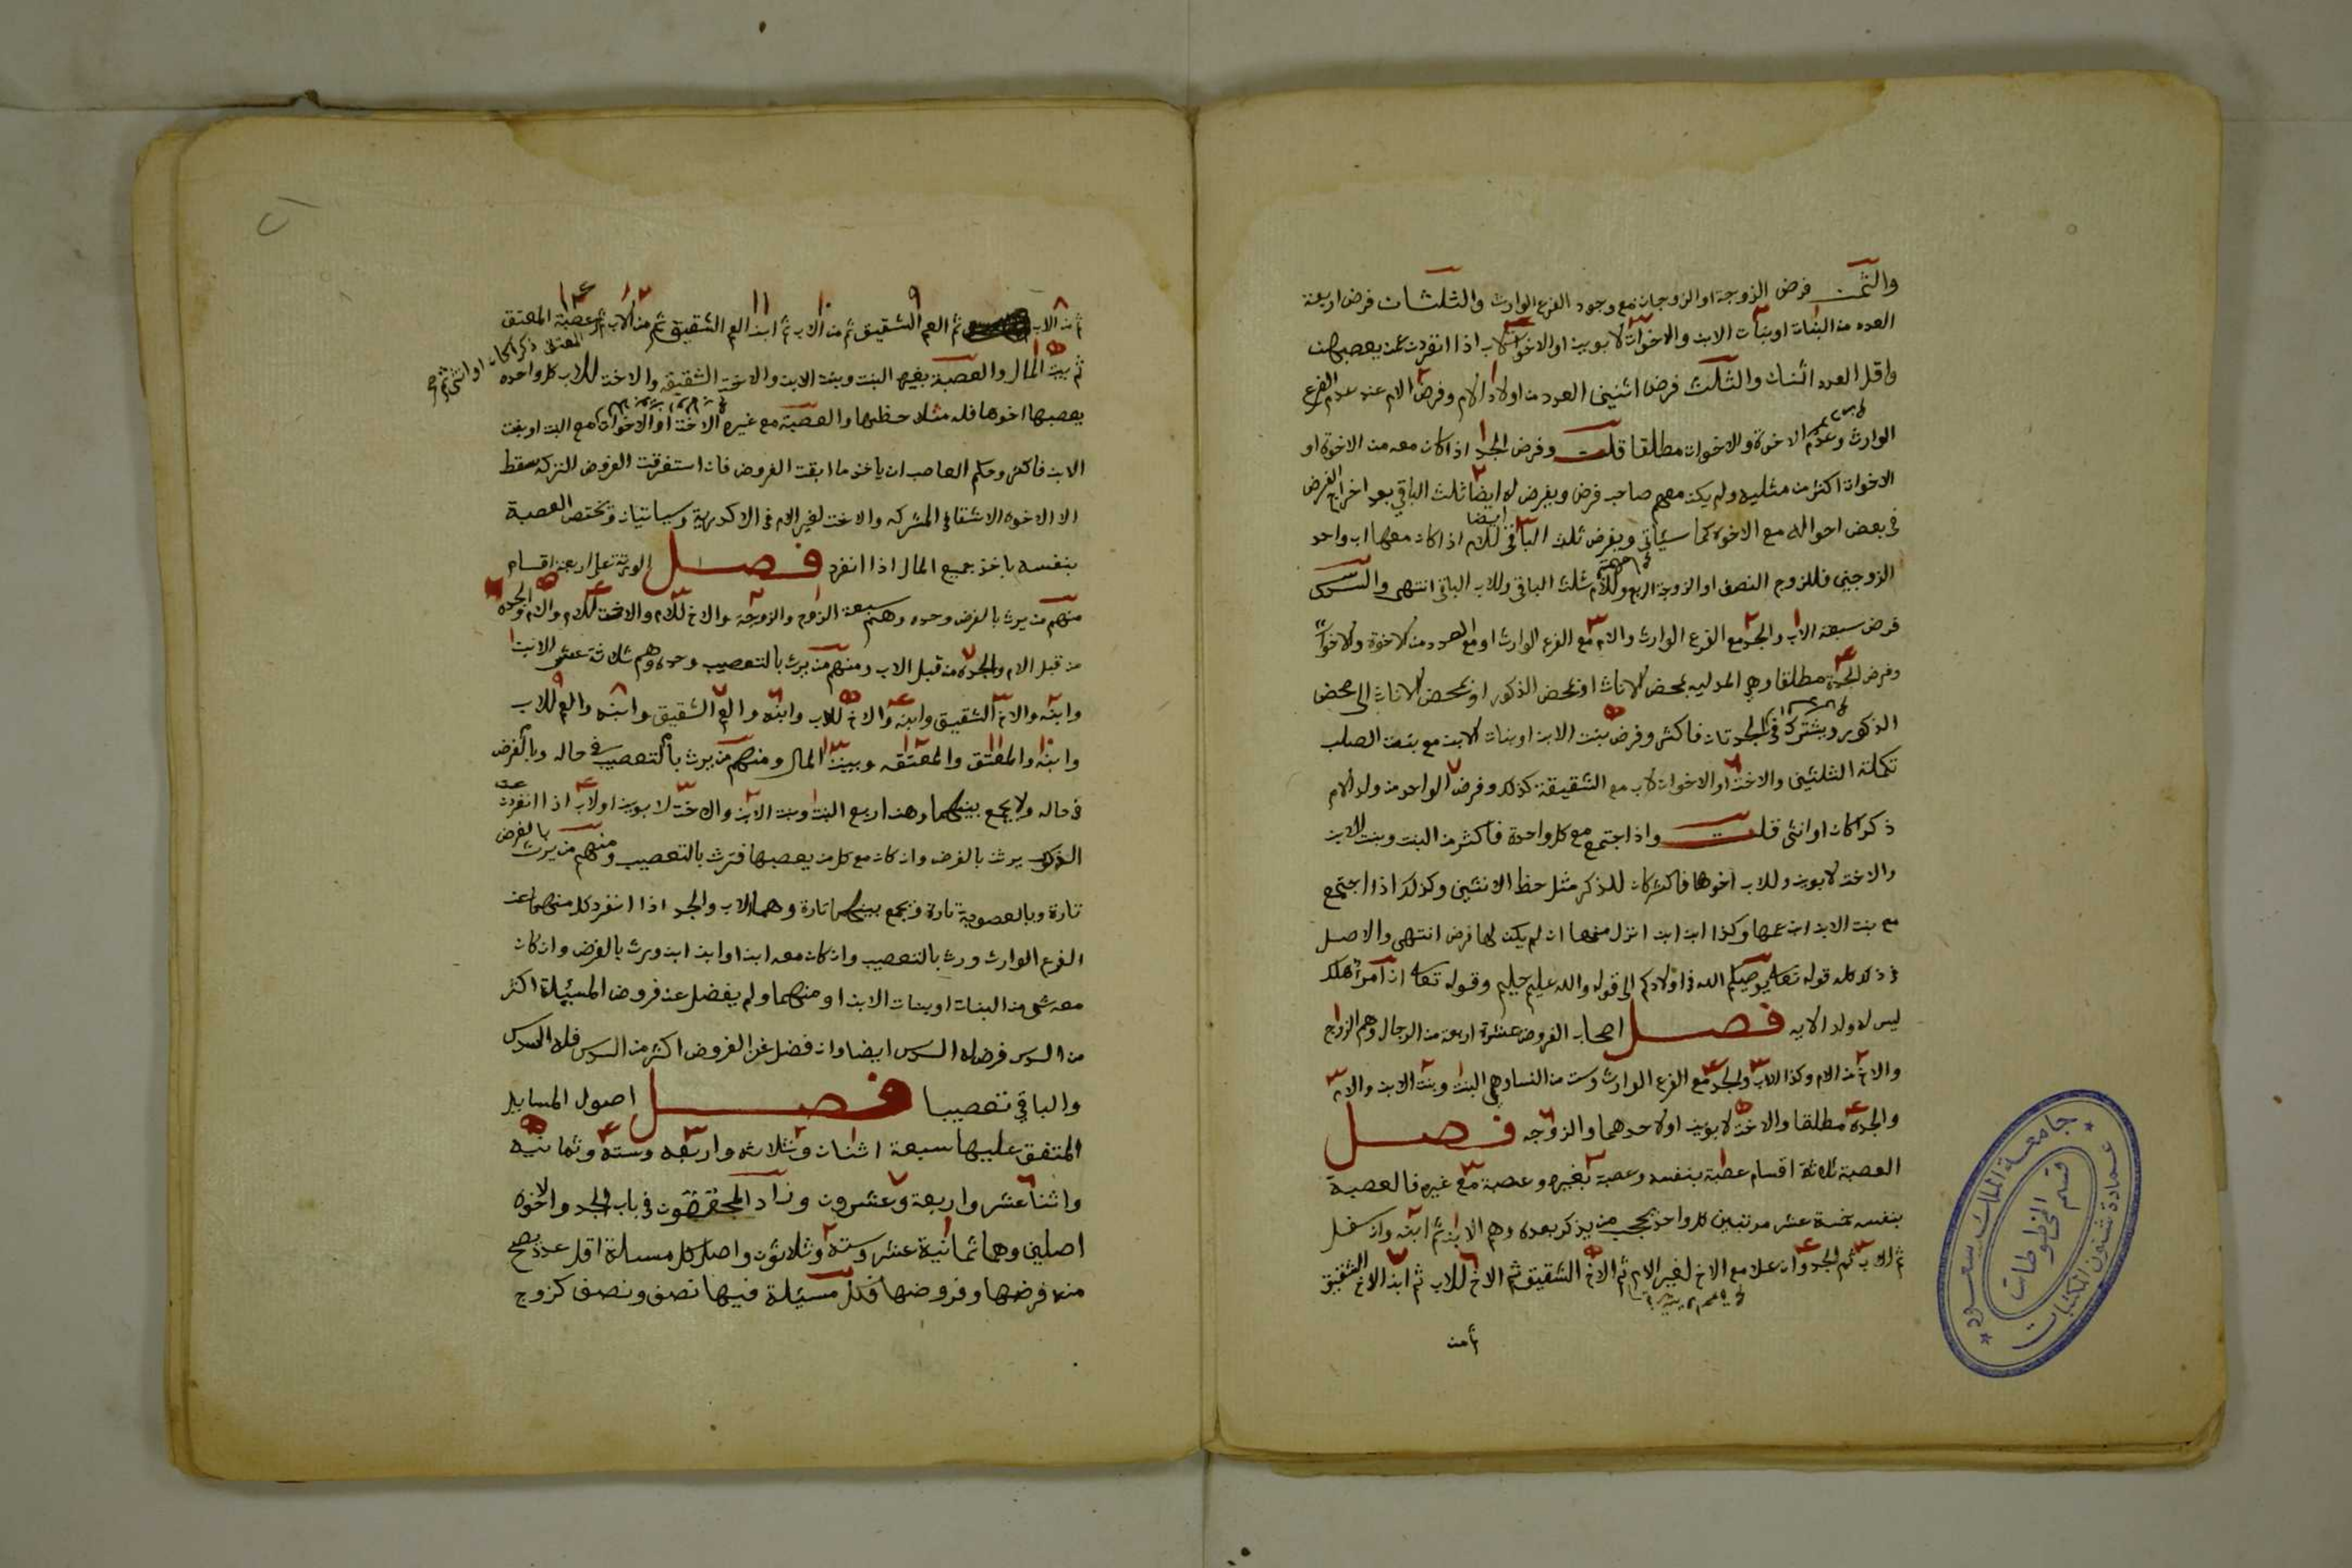 والثمن فرض الزوجة او الزوجات مع وجود الفرع الوارث والثلثان فرض اربعة
العدد من البنات او بنات الابن والاخوات لابوين او الاخوات لاب اذا انفردت عن يعصبهن
واقل العدد اثنان والثلث فرض اثنين العدد من اولاد الام وفرض الام عند عدم الفرع
الوارث وعدم الاخوة والاخوات مطلقا قلت وفرض الجد اذا كان معه من الاخوة او
الاخوات اكثر من مثليه ولم يكن معهم صاحب فرض ويفرض له ايضا ثلث الباقي بعد اخراج الفرض
في بعض احواله مع الاخوة كما سيأتي ويفرض ثلث الباقي ايضا للام اذا كان معها اب واحد
الزوجين فللزوج النصف او الزوجة الربع وللام ثلث الباقي وللاب الباقي انتهى والسدس
فرض سبعة الاب والجد مع الفرع الوارث والام مع الفرع الوارث او مع العدد من الاخوة والاخوات
وفرض الجدة مطلقا وهي المدلية بمحض الاناث او بمحض الذكور او بمحض الاناث الى محض
الذكور ويشترك في الجدتان فاكثر وفرض بنت الابن او بنات الابن مع بنت الصلب
تكملة الثلثين والاخت او الاخوات لاب مع الشقيقة كذلك وفرض الواحد من ولد الام
ذكرا كان او انثى قلت واذا اجتمع مع كل واحدة فاكثر من البنت وبنت الابن
والاخت لابوين وللاب اخوها فاكثر كان للذكر مثل حظ الانثيين وكذلك اذا اجتمع
مع بنت الابن ابن عمها وكذا ابن ابن انزل منها ان لم يكن لها فرض انتهى والاصل
في ذلك كله قوله تعالى يوصيكم الله في اولادكم الى قوله والله عليم حليم وقوله تعالى ان امرؤ هلك
ليس له ولد الايه فصل اصحاب الفروض عشرة اربعة من الرجال وهم الزوج
والاخ من الام وكذا الاب والجد مع الفرع الوارث وست من النساء وهي البنت وبنت الابن والام
والجدة مطلقا والاخت لابوين او لاحدهما والزوجه فصل
العصبة ثلاثة اقسام عصبة بنفسه وعصبة بغيره وعصبة مع غيره فالعصبة
بنفسه خمسة عشر مرتبين كل واحد يحجب من يذكر بعده وهم الابن ثم ابنه وان سفل
ثم الاب ثم الجد وان علا مع الاخ لغير الام ثم الاخ الشقيق ثم الاخ للاب ثم ابن الاخ الشقيق
ثم من
جامعة الملك سعود
عمادة شئون المكتبات
قسم المخطوطات
ثم من الاب ثم العم الشقيق ثم من الاب ثم ابن العم الشقيق ثم من الاب ثم عصبة المعتق
المعتق ذكرا كان او انثى ثم
ثم بيت المال والعصبة بغيره البنت وبنت الابن والاخت الشقيقه والاخت للاب كل واحده
يعصبها اخوها فله مثلا حظها والعصبة مع غيره الاخت او الاخوات مع البنت او بنت
الابن فاكثر وحكم العاصب ان ياخذ ما ابقت الفروض فان استغرقت الفروض التركه سقط
الا الاخوه الاشقا في المشركه والاخت لغير الام في الاكدرية وسياتيان وتختص العصبة
بنفسه باخذ جميع المال اذا انفرد فصل الورثة على اربعة اقسام
منهم من يرث بالفرض وحده وهم سبعة الزوج والزوجة والاخ للام والاخت للام والام والجدة
من قبل الام والجدة من قبل الاب ومنهم من يرث بالتعصيب وحده وهم ثلاثة عشر الابن
وابنه والاخ الشقيق وابنه والاخ للاب وابنه والعم الشقيق وابنه والعم للاب
وابنه والمعتق والمعتقه وبيت المال ومنهم من يرث بالتعصيب في حاله وبالفرض
في حاله ولا يجمع بينهما وهن اربع البنت وبنت الابن والاخت لابوين او لاب اذا انفردت عن
الذكر يرث بالفرض وان كان مع كل من يعصبها فترث بالتعصيب ومنهم من يرث بالفرض
تارة وبالعصوبة تارة ويجمع بينهما تارة وهما الاب والجد اذا انفرد كل منهما عن
الفرع الوارث ورث بالتعصيب وان كان معه ابن او ابن ابن ورث بالفرض وان كان
معه شي من البنات او بنات الابن او منهما ولم يفضل عن فروض المسيلة اكثر
من السدس فرض له السدس ايضا وان فضل عن الفروض اكثر من السدس فله السدس
والباقي تعصيبا فصل اصول المسايل
المتفق عليها سبعة اثنان وثلاثه واربعه وسته وثمانيه
واثنا عشر واربعة وعشرون وزاد المحققون في باب الجد والاخوه
اصلين وهما ثمانية عشر وستة وثلاثون واصل كل مسالة اقل عدد يصح
منه فرضها وفروضها فكل مسئلة فيها نصف ونصف كزوج